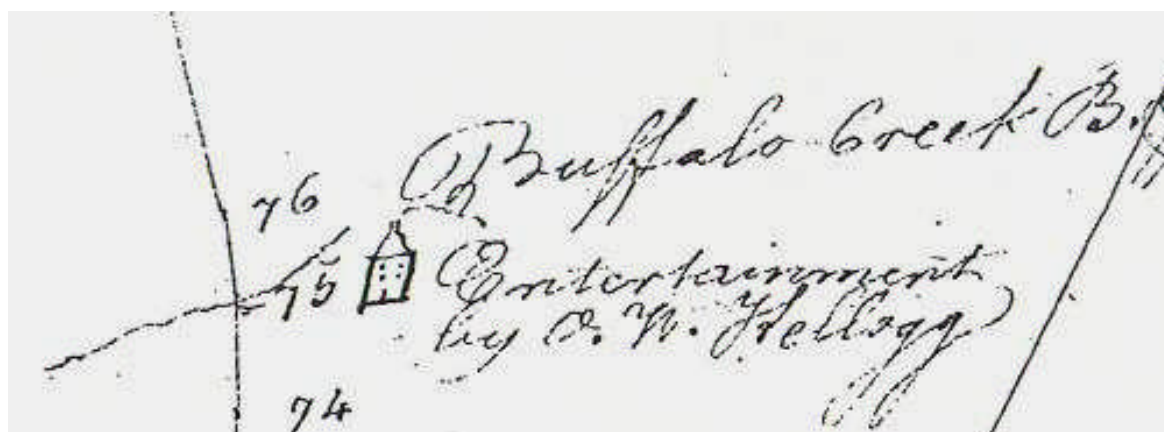 Buffalo Creek B.
76
75
Entertainment
by Kellogg
74